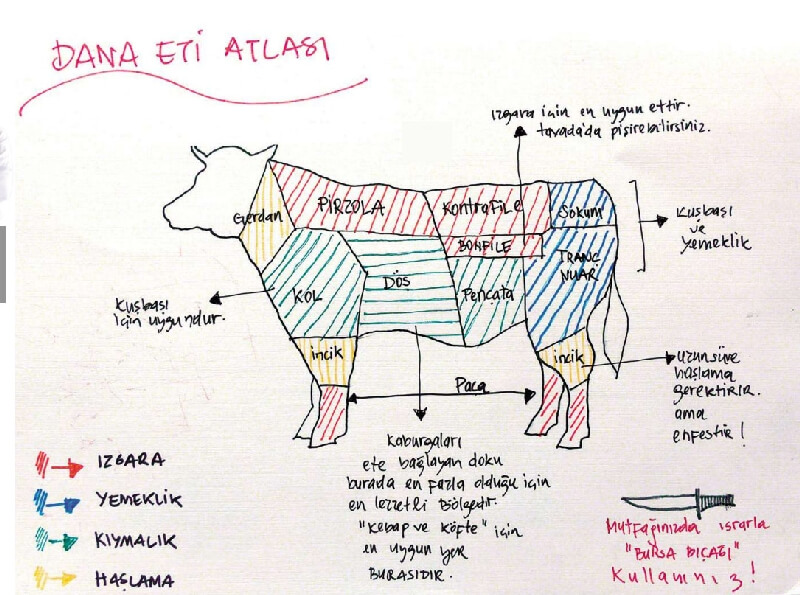 DANA ETİ ATLASI
Izgara için en uygun ettir.
tavada'da pişirebilirsiniz.
Gerdan
PİRZOLA
KontraFiLe
Sokum
BONFİLE
TRANÇ
NUAR
KOL
DÖŞ
Pencata
Kuşbaşı
ve
yemeklik
Kuşbaşı
için uygundur.
incik
incik
Paça
uzun süre
haşlama
gerektirir.
ama
enfestir!
Kaburgaları
ete bağlayan doku
burada en fazla olduğu için
en lezzetli bölgedir.
"Kebap ve Köfte" için
en uygun yer
BURASIDIR.
IZGARA
YEMEKLİK
KIYMALIK
HAŞLAMA
Mutfağınızda ısrarla
"BURSA BIÇAĞI"
Kullanınız!